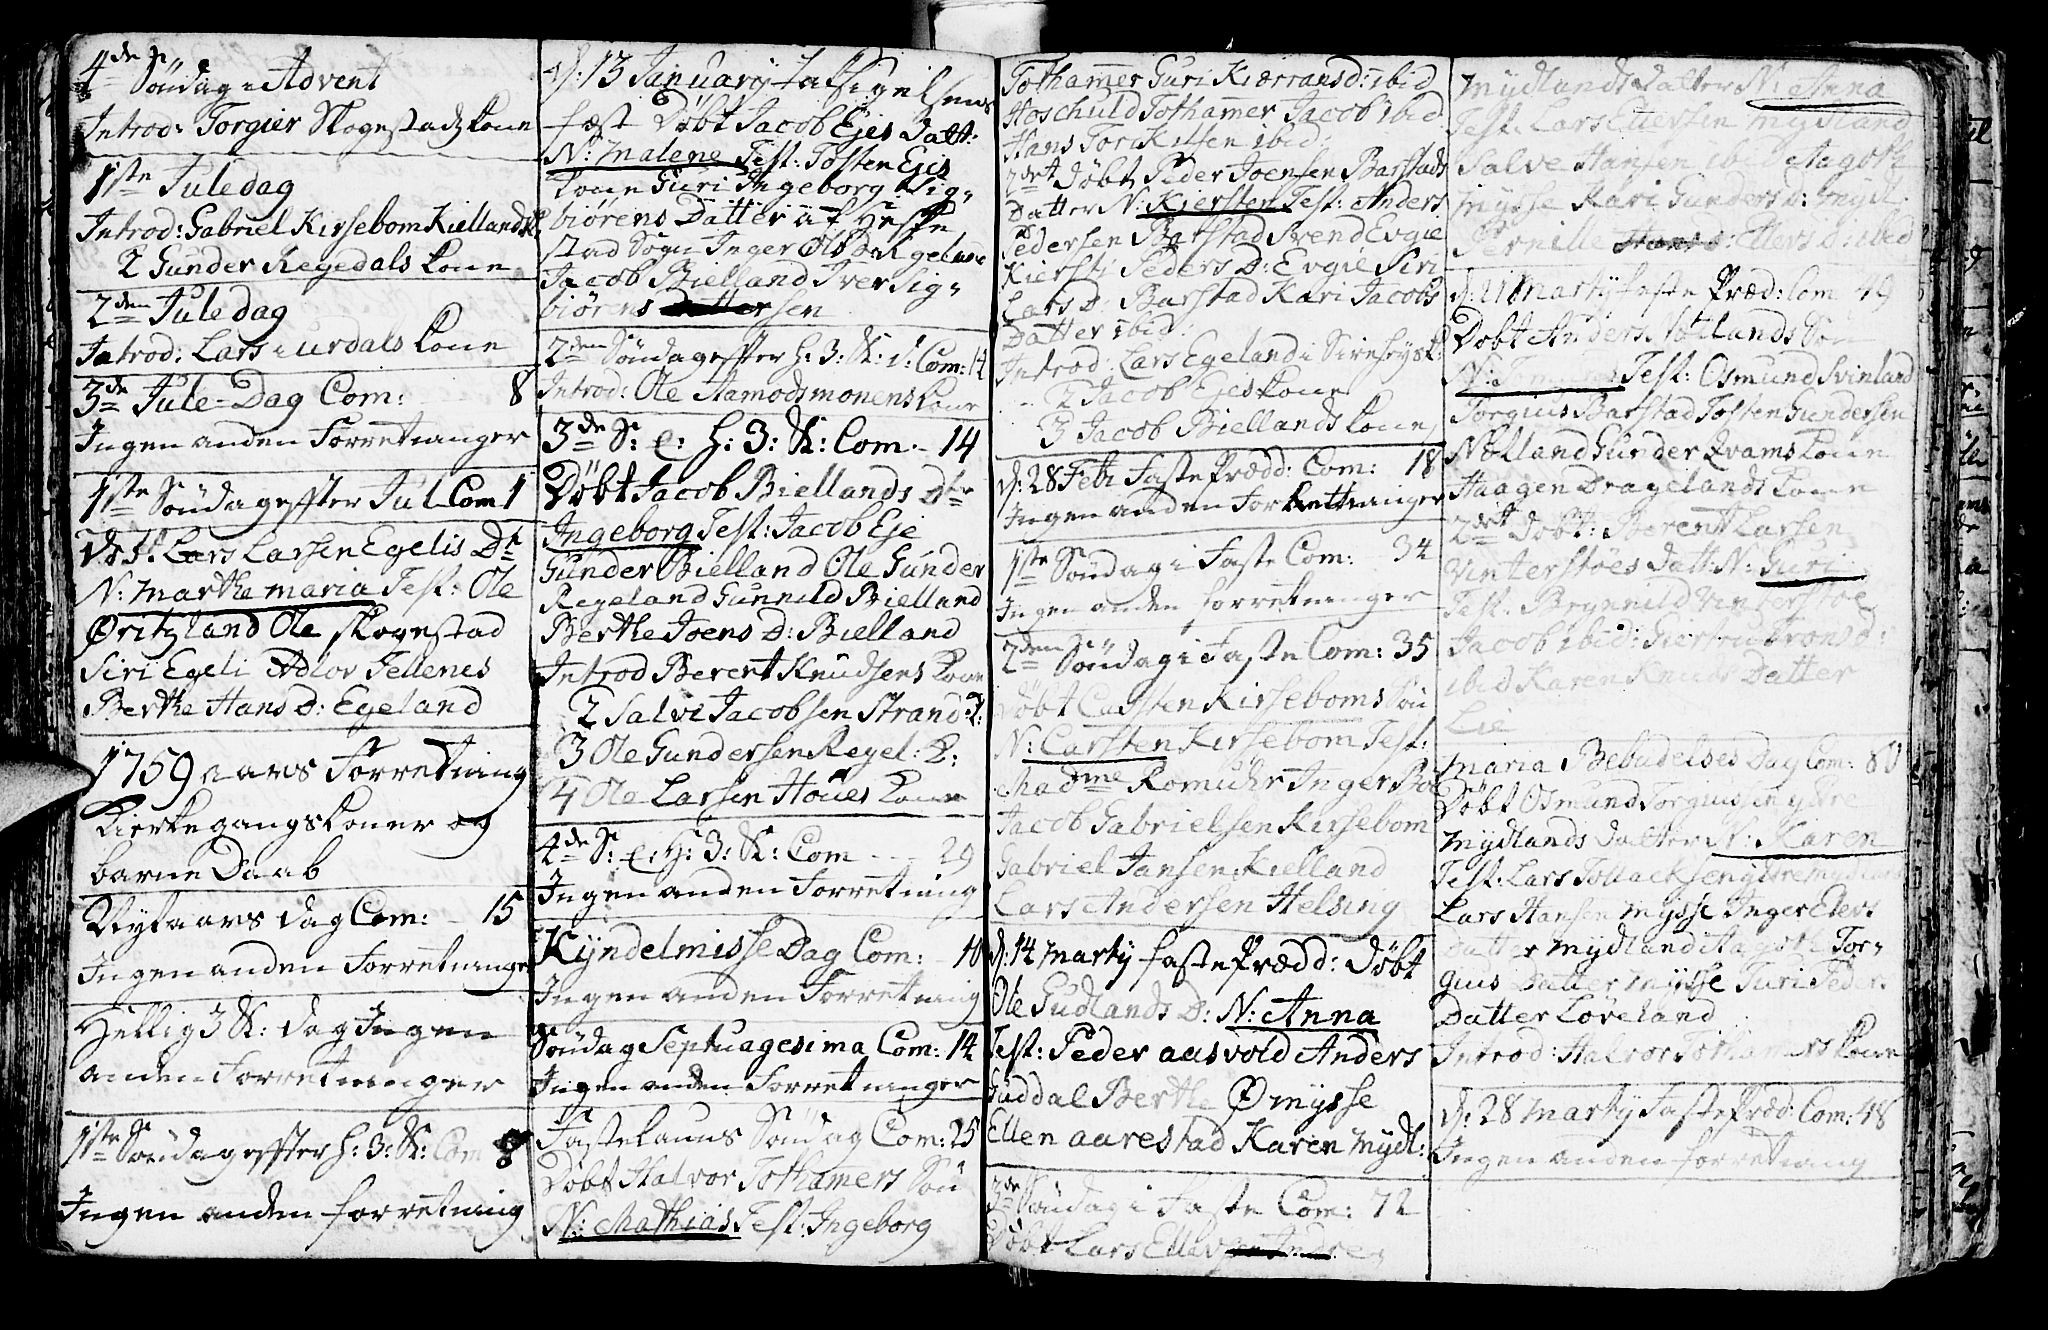 4de Søndag i Advent
Introd: Torgier Skogestads kone
1ste Juledag
Introd: Gabriel Kirsebom Kiellands K:
2 Gunder Regedals kone
2den Juledag
Introd: Lars i urdals kone
3de Jule-Dag Com: 8
Ingen anden Forretninger
1ste Søndag effter Jul Com 1
Døbt Lars Larsen Egelis Dt
N: Marthe maria Test: Ole
Øritzland Ole Skogestad
Siri Egeli Adlov Fellenes
Berthe Hans D: Egeland
1759 aars Forretning
Kirkegangskoner og
barne Daab
Nytaars dag Com: 15
Ingen anden Forretninger
Hellig 3 K: dag Ingen
anden Forretninger
1ste Søndag effter h: 3: K: Com 8
Ingen anden forretning
d: 13 January Taksigelsens
fæst Døbt Jacob Ejes Datt:
N: Malene Test: Tosten Ejes
kone Guri Ingeborg Sig-
biørens Datter af Heske
stad Sogn Inger Ols D: Rgeland
Jacob Bielland Iver Sig-
biørens sen
2den Søndag effter h: 3: K: d: Com: 14
Introd: Ole Aamodsmonens kone
3de S: e: h: 3: K: Com - 14
Døbt Jacob Biellands Dtr
Ingeborg Test: Jacob Eje
Gunder Bielland Ole Gunder
Regeland Gunnild Bielland
Berthe Joens D: Bielland
Introd Berent Knudsens kone
2 Salvi Jacobsen Strand: K:
3 Ole Gundersen Regel: K:
4 Ole Larsen Houes kone
4de S: e: H: 3: K: Com - - 29
Ingen anden Forretning
Kyndelmisse Dag Com: 10
Ingen anden Forretning
Søndag Septuagesima Com: 14
Ingen anden Forretninger
Fastelauns Søndag Com: 25
Døbt Halvor Tothamers Søn
N: Mathias Test: Ingeborg
Tothammer Guri Kiærrans d: ibid
Hoschuld Tothamer Jacob ibid
Hans Torkilsen ibid
2det Døbt Peder Joensen Barstads
Datter N: Kiersten Test: Anders
Pedersen Barstad Svend Evgie
Kiersti Peders D: Evgie Siri
Lars D: Barstad Kari Jacobs
Datter ibid.
Introd: Lars Egeland i Sireheys K:
2 Jacob Ejes kone
3 Jacob Biellands kone
d: 28 Feb: Fasteprædd: Com: 18
Ingen anden Forrettninger
1ste Søndag i Faste Com: 34
Ingen anden forretninger
2den Søndag i Faste Com: 35
Døbt Carsten Kirseboms Søn
N: Carsten Kirsebom Test:
Madme Romuhr Inger
Jacob Gabrielsen Kirsebom
Gabriel Jansen Kielland
Lars Andersen Helsing
d: 14 Marty fasteprædd: Døbt
Ole Gudlands D: N: Anna
Test: Peder aasvold Anders
Guddal Berthe Ømysse
Ellen aarestad Karen Mydl:
3de Søndag i Faste Com: 72
Døbt Lars Ellev
Mydlands Datter N: Anna
Test: Lars Ellersen Mydland
Salve Hansen ibid Aagothe
Mysse Kari Gunders D: Mydl.
Pernille Ellers D: ibid
d: 21 Marty faste Præd: Com 49
Døbt Anders Nøtlands Søn
N: Test: Osmund Svinland
Torgius Barstad Tosten Gundersen
Nøtland Gunder Qvams kone
Haagen Dragelands kone
2det Døbt: Berent Larsen
Vinterstøes datt: N: Guri
Test: Brynnild Vinterstøe
Jacob ibid: Giertru Trons d:
ibid Karen Knuds Datter
Lie
Maria Bebudelses Dag Com: 80
Døbt Osmund Torgiussen ydtre
Mydlands datter N: Karen
Test: Lars Tollacksen ytre Mydland
Lars Hansen Mysse Inger Elers
Datter Mydland Aagothe Tor-
gius Datter Mysse Turi Peders
Datter Løveland
Introd: Halvor Tothamers kone
d: 28 Marty Faste Præd: Com: 48
Ingen anden forretning